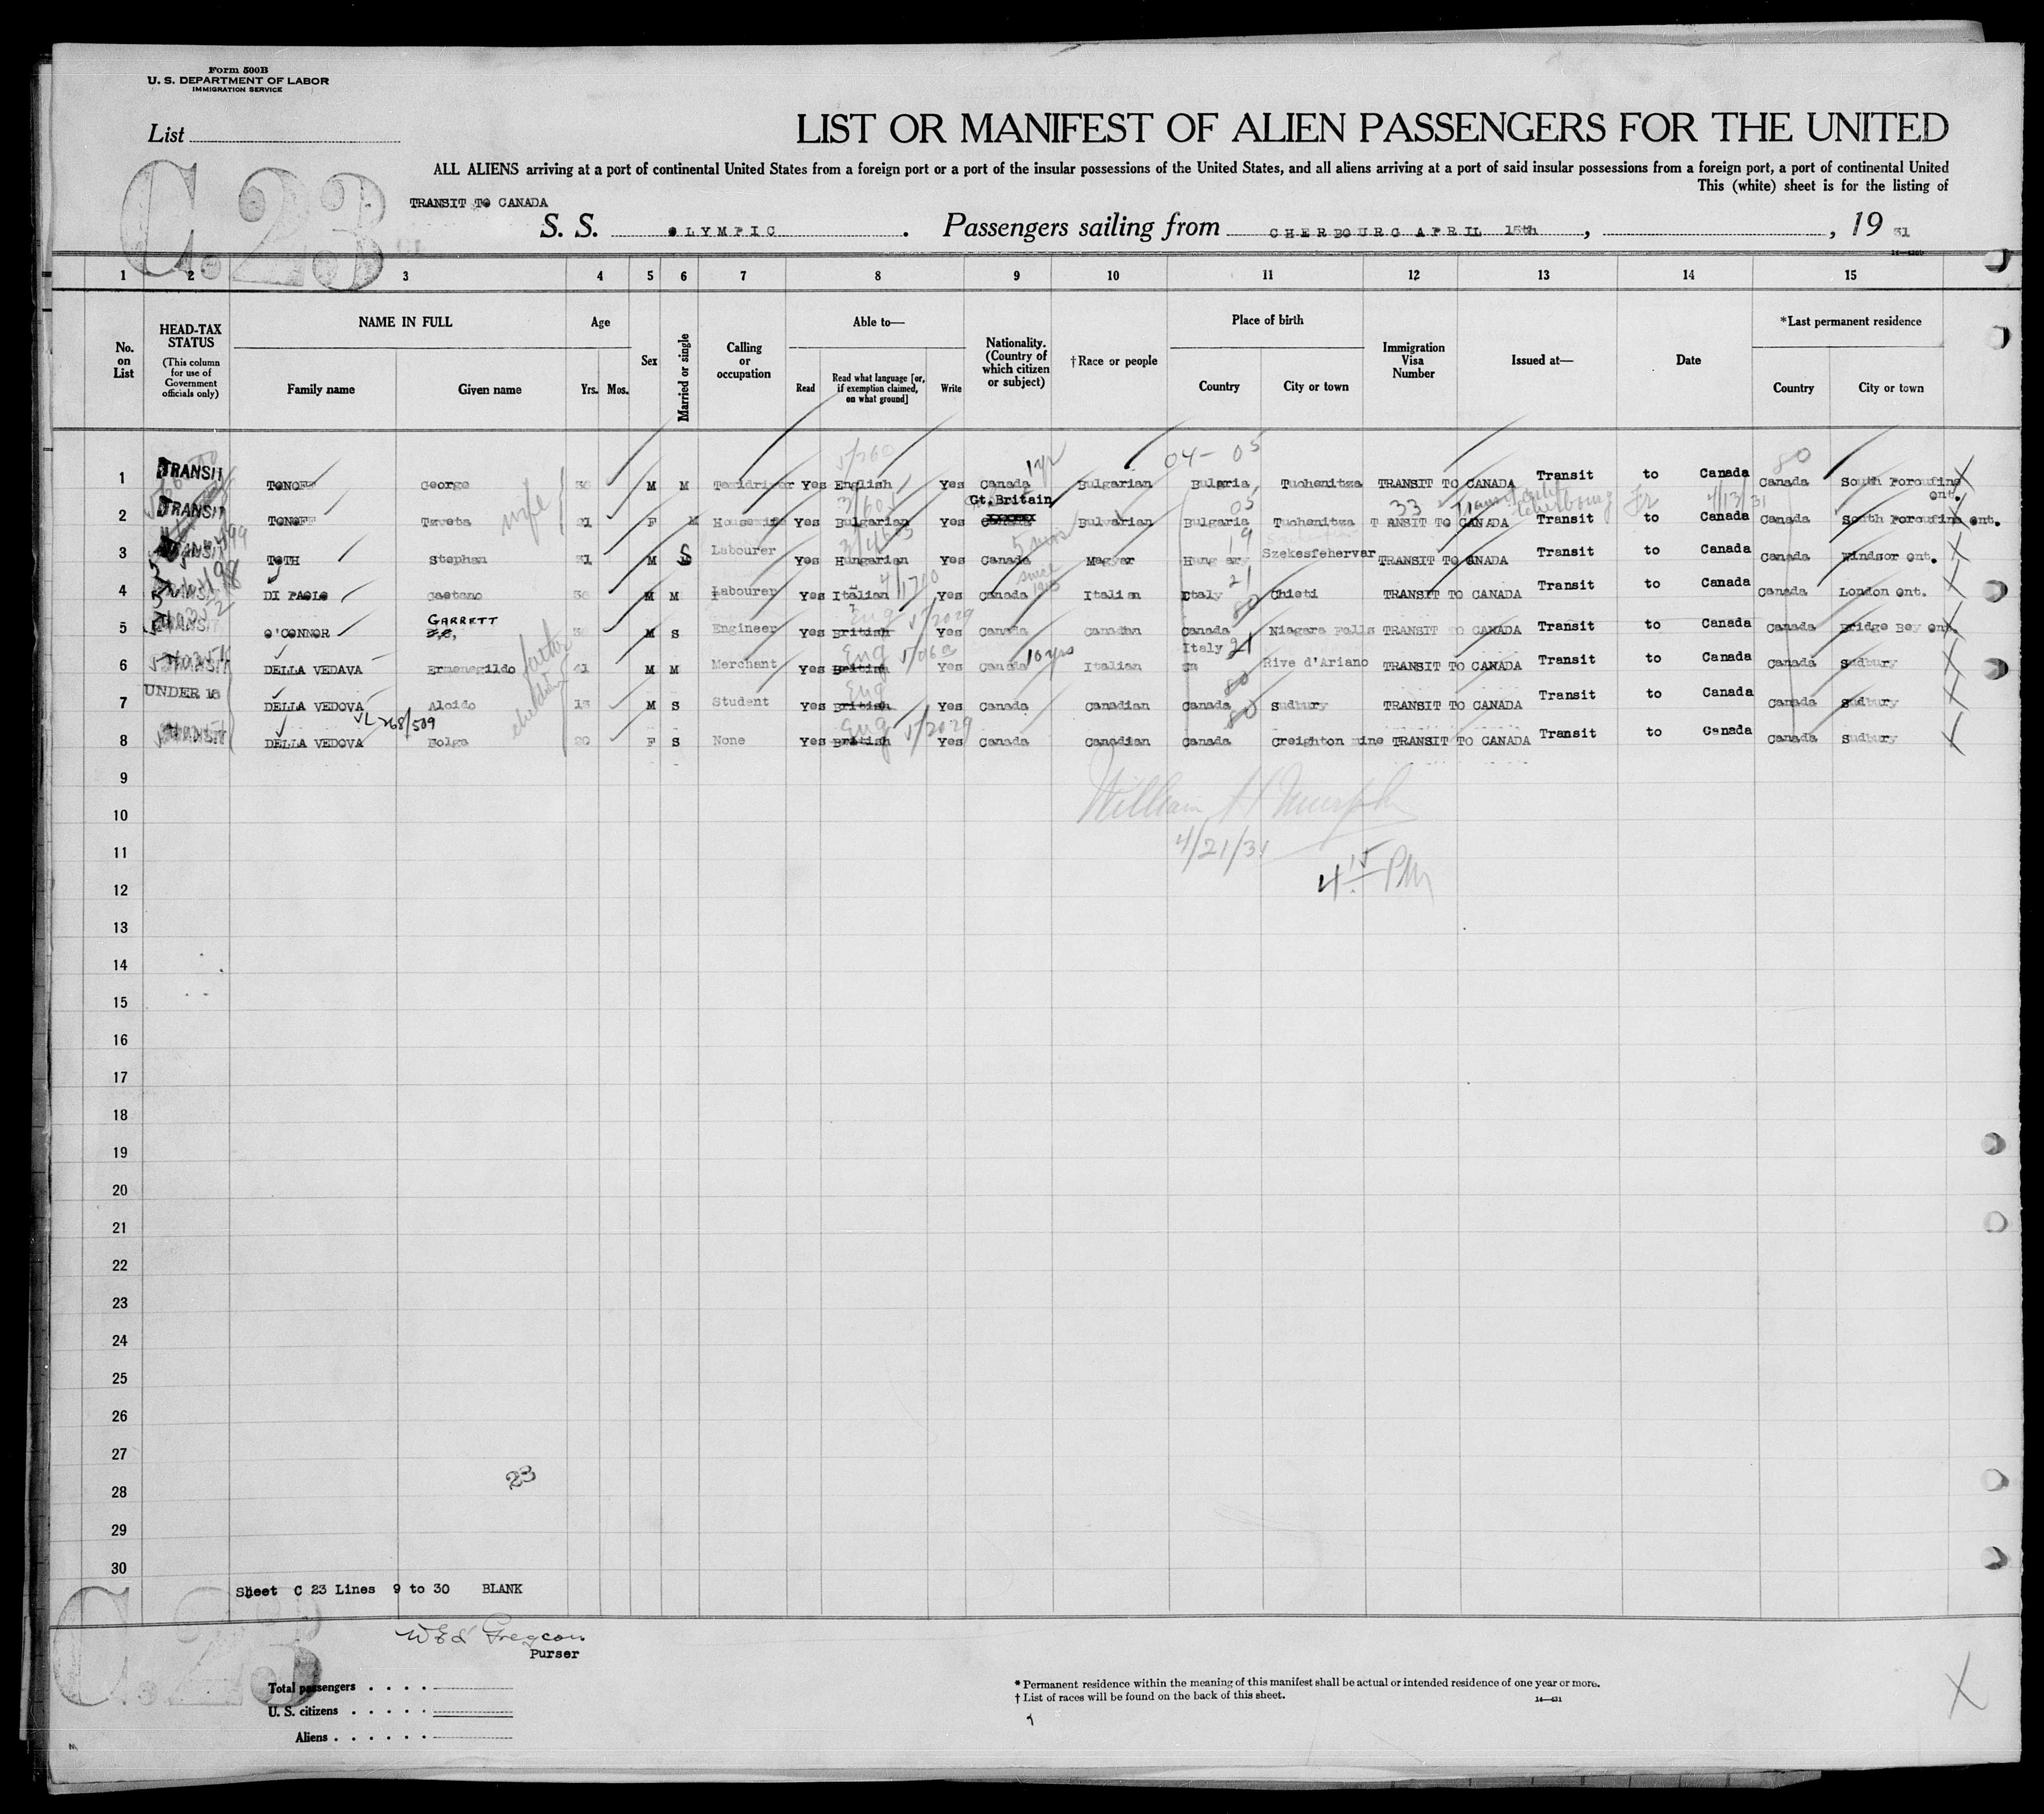 Form 500B
U. S. DEPARTMENT OF LABOR
IMMIGRATION SERVICE
List
LIST OR MANIFEST OF ALIEN PASSENGERS FOR THE UNITED
ALL ALIENS arriving at a port of continental United States from a foreign port or a port of the insular possessions of the United States, and all aliens arriving at a port of said insular possessions from a foreign port, a port of continental United
This (white) sheet is for the listing of
C.23
TRANSIT TO CANADA
S. S. OLYMPIC. Passengers sailing from CHERBOURG APRIL 15th, , 19 31
1 2 3 4 5 6 7 8 9 10 11 12 13 14 15
No. on List
HEAD-TAX STATUS (This column for use of Government officials only)
NAME IN FULL
Family name Given name
Age
Yrs. Mos.
Sex
Married or single
Calling or occupation
Able to—
Read Read what language [or, if exemption claimed, on what ground] Write
Nationality. (Country of which citizen or subject)
†Race or people
Place of birth
Country City or town
Immigration Visa Number
Issued at—
Date
*Last permanent residence
Country City or town
5/260 1 yr 04- 05 80
1 TRANSIT TONOFF George 36 M M Taxidriver Yes English Yes Canada Bulgarian Bulgaria Tuchenitza TRANSIT TO CANADA Transit to Canada Canada South Porcupine ont.
wife 3/601 Gt.Britain 05 33 Cherbourg Fr 4/13/31
2 TRANSIT TONOFF Tzveta 21 F M Housewife Yes Bulgarian Yes Bulgarian Bulgaria Tuchenitza T ANSIT TO CANADA Transit to Canada Canada South Porcupine ont.
5 yrs 19
3 TRANSIT TOTH Stephan 31 M S Labourer Yes Hungarian Yes Canada Magyar Hungary Szekesfehervar TRANSIT TO CANADA Transit to Canada Canada Windsor ont.
since 1913 21
4 TRANSIT DI PAOLO Gaetano 36 M M Labourer Yes Italian Yes Canada Italian Italy Chieti TRANSIT TO CANADA Transit to Canada Canada London ont.
GARRETT Eng 5/2029 80
5 TRANSIT O'CONNOR M S Engineer Yes British Yes Canada Canadian Canada Niagara Falls TRANSIT TO CANADA Transit to Canada Canada Bridge Bey ont.
father Eng 10 yrs Italy 21
6 TRANSIT DELLA VEDAVA Ermenegildo 41 M M Merchant Yes British Yes Canada Italian Rive d'Ariano TRANSIT TO CANADA Transit to Canada Canada Sudbury
UNDER 16 children Eng 80
7 DELLA VEDOVA Aloido 13 M S Student Yes British Yes Canada Canadian Canada Sudbury TRANSIT TO CANADA Transit to Canada Canada Sudbury
VL 268/509 Eng 5/2029 80
8 TRANSIT DELLA VEDOVA Folga 20 F S None Yes British Yes Canada Canadian Canada Creighton mine TRANSIT TO CANADA Transit to Canada Canada Sudbury
9
10 William H Murphy
11 4/21/31
12 4 15 PM
13
14
15
16
17
18
19
20
21
22
23
24
25
26
27
23
28
29
30
Sheet C 23 Lines 9 to 30 BLANK
C.23
Purser
Total passengers
U. S. citizens
Aliens
* Permanent residence within the meaning of this manifest shall be actual or intended residence of one year or more.
† List of races will be found on the back of this sheet.
14—431